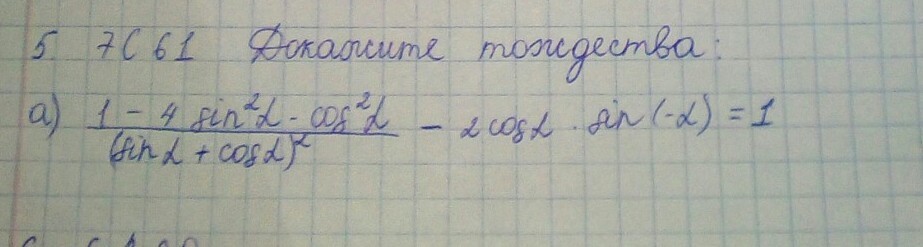 5 7С61 Докажите тождества:
а) 1 - 4 sin²α - cos²α / (sin α + cos α)² - 2 cos α · sin (-α) = 1